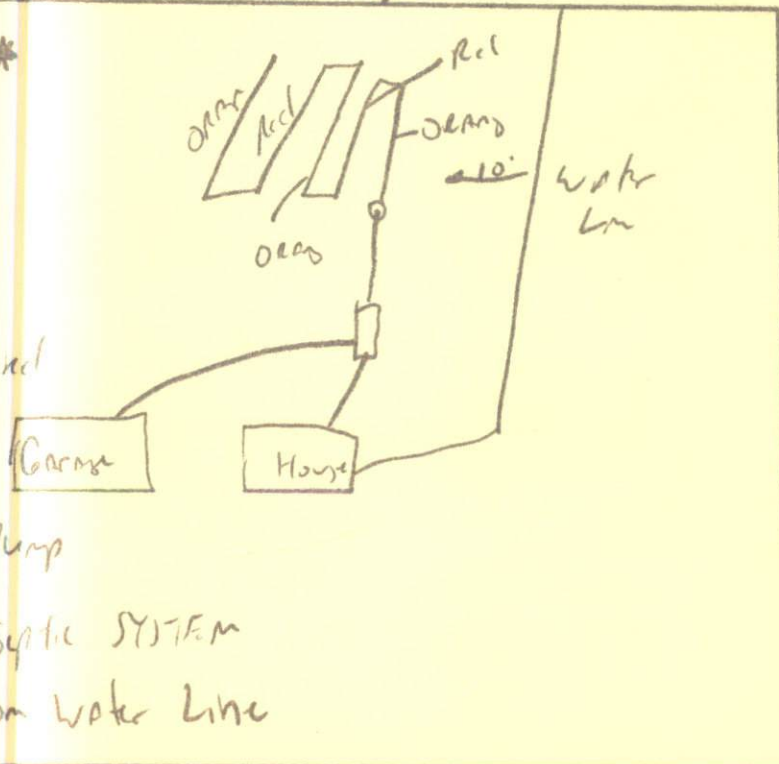 *
Red
Orang
Red
Orang
10'
Water
Lin
Orang
Garage
House
ump
Septic SYSTEM
om Water Line